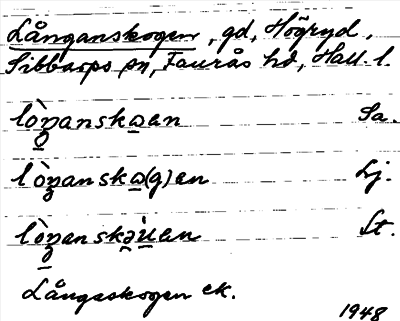 Långanskogen, gd, Högryd,
Sibbarps sn, Faurås hd, Hall. l.
lòŋanskωen Sa.
lòŋanskω(g)en Lj.
lòŋanskəu̇en St.
Långaskogen ek.
1948